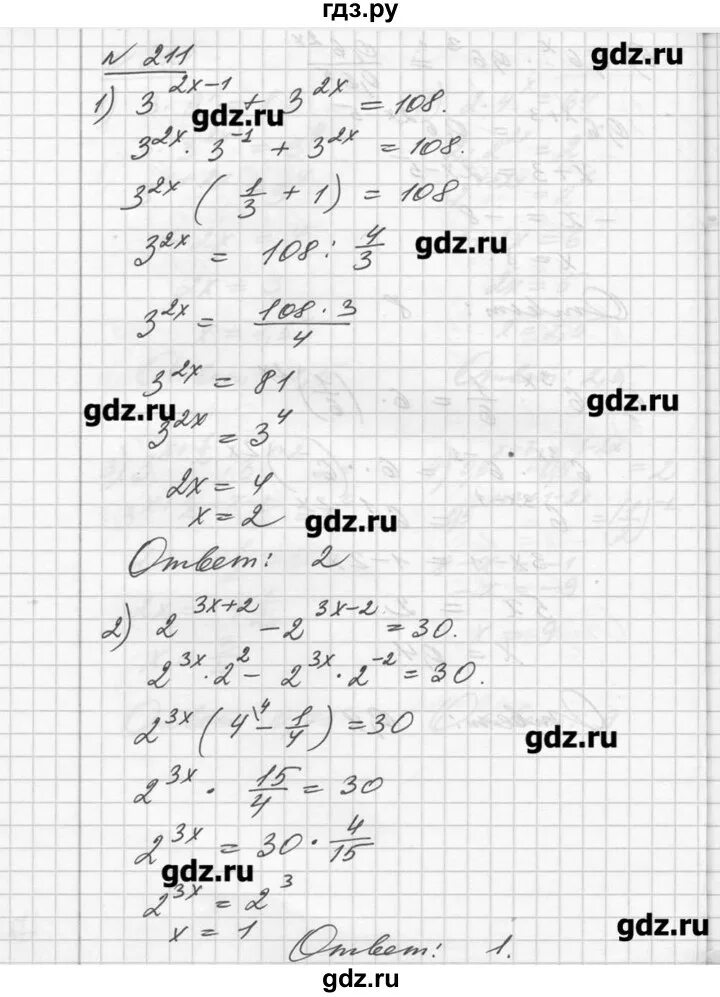 гдз.ру
№ 211
gdz.ru
1) 3^(2x-1) + 3^(2x) = 108.
gdz.ru
3^(2x) · 3^(-1) + 3^(2x) = 108.
3^(2x) (1/3 + 1) = 108
3^(2x) = 108 : 4/3
gdz.ru
3^(2x) = (108 · 3)/4
3^(2x) = 81
gdz.ru
gdz.ru
3^(2x) = 3^4
2x = 4
x = 2
gdz.ru
Ответ: 2
2) 2^(3x+2) - 2^(3x-2) = 30.
2^(3x) · 2^2 - 2^(3x) · 2^(-2) = 30.
2^(3x) (4\4 - 1/4) = 30
gdz.ru
2^(3x) · 15/4 = 30
2^(3x) = 30 · 4/15
gdz.ru
2^(3x) = 2^3
x = 1
gdz.ru
Ответ: 1.
gdz.ru